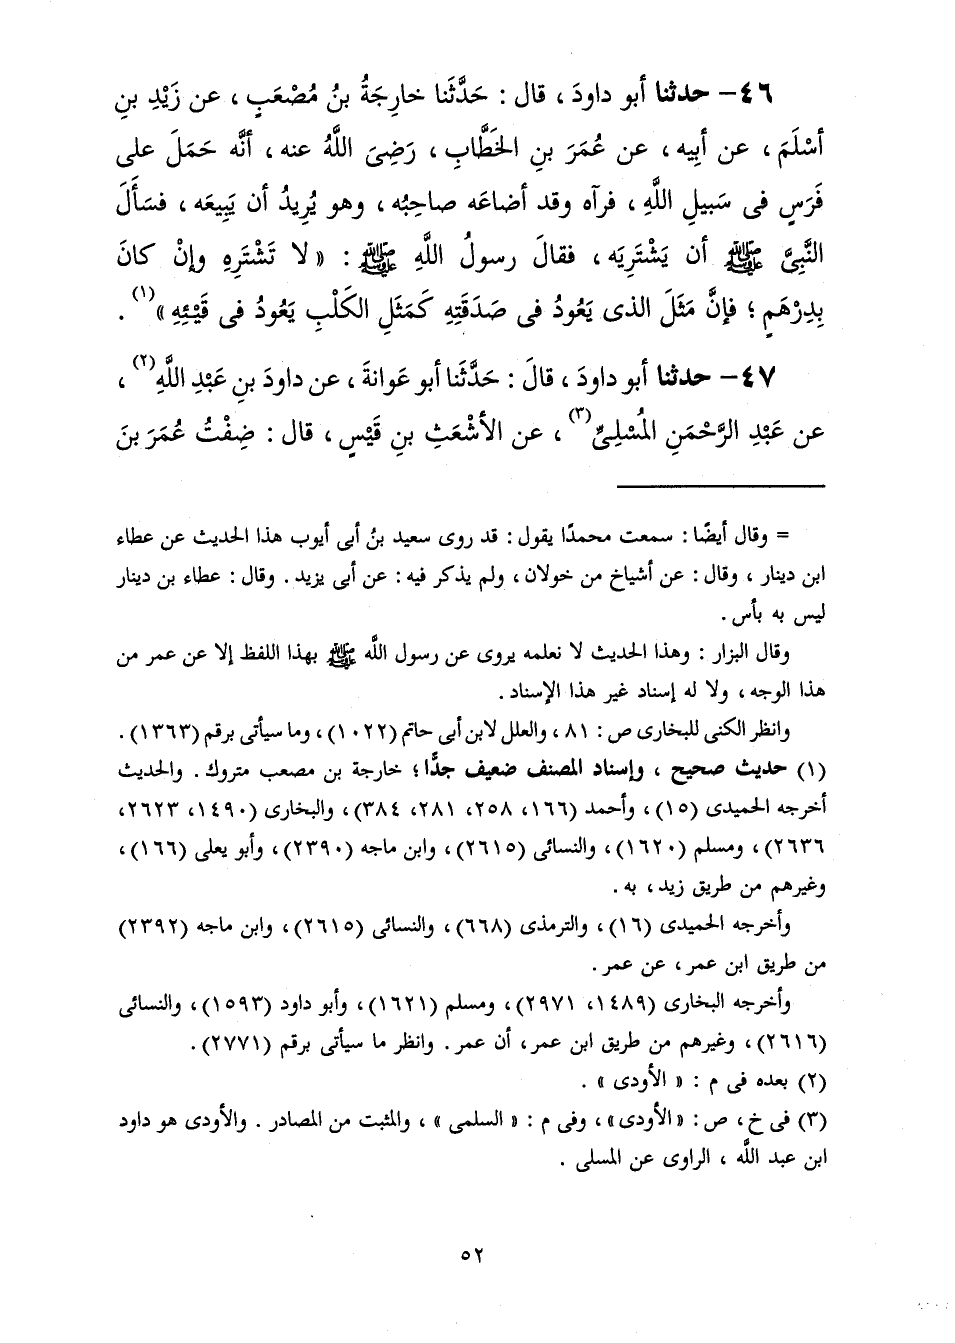 ٤٦- حدثنا أبو داودَ ، قال : حَدَّثَنا خارِجَةُ بنُ مُصْعَبٍ ، عن زَيْدِ بنِ
أسْلَمَ ، عن أبِيه ، عن عُمَرَ بنِ الخَطَّابِ ، رَضِىَ اللَّهُ عنه ، أنَّه حَمَلَ على
فَرَسٍ فى سَبيلِ اللَّهِ ، فرآه وقد أضاعَه صاحِبُه ، وهو يُرِيدُ أن يَبِيعَه ، فسَأَلَ
النَّبِىَّ ﷺ أن يَشْتَرِيَه ، فقالَ رسولُ اللَّهِ ﷺ : « لا تَشْتَرِهِ وإنْ كانَ
بِدِرْهَمٍ ؛ فإنَّ مَثَلَ الذى يَعُودُ فى صَدَقَتِهِ كَمَثَلِ الكَلْبِ يَعُودُ فى قَيْئِهِ »(١) .
٤٧- حدثنا أبو داودَ ، قالَ : حَدَّثَنا أبو عَوانةَ ، عن داودَ بنِ عَبْدِ اللَّهِ(٢) ،
عن عَبْدِ الرَّحْمَنِ المُسْلِىِّ(٣) ، عن الأشْعَثِ بنِ قَيْسٍ ، قال : ضِفْتُ عُمَرَ بنَ
= وقال أيضًا : سمعت محمدًا يقول : قد روى سعيد بنُ أبى أيوب هذا الحديث عن عطاء
ابن دينار ، وقال : عن أشياخ من خولان ، ولم يذكر فيه : عن أبى يزيد . وقال : عطاء بن دينار
ليس به بأس .
وقال البزار : وهذا الحديث لا نعلمه يروى عن رسول اللَّه ﷺ بهذا اللفظ إلا عن عمر من
هذا الوجه ، ولا له إسناد غير هذا الإسناد .
وانظر الكنى للبخارى ص : ٨١ ، والعلل لابن أبى حاتم (١٠٢٢) ، وما سيأتى برقم (١٣٦٣) .
(١) حديث صحيح ، وإسناد المصنف ضعيف جدًّا ؛ خارجة بن مصعب متروك . والحديث
أخرجه الحميدى (١٥) ، وأحمد (١٦٦، ٢٥٨، ٢٨١، ٣٨٤) ، والبخارى (١٤٩٠، ٢٦٢٣،
٢٦٣٦) ، ومسلم (١٦٢٠) ، والنسائى (٢٦١٥) ، وابن ماجه (٢٣٩٠) ، وأبو يعلى (١٦٦) ،
وغيرهم من طريق زيد ، به .
وأخرجه الحميدى (١٦) ، والترمذى (٦٦٨) ، والنسائى (٢٦١٥) ، وابن ماجه (٢٣٩٢)
من طريق ابن عمر ، عن عمر .
وأخرجه البخارى (١٤٨٩، ٢٩٧١) ، ومسلم (١٦٢١) ، وأبو داود (١٥٩٣) ، والنسائى
(٢٦١٦) ، وغيرهم من طريق ابن عمر ، أن عمر . وانظر ما سيأتى برقم (٢٧٧١) .
(٢) بعده فى م : « الأودى » .
(٣) فى خ ، ص : « الأودى» ، وفى م : « السلمى » ، والمثبت من المصادر . والأودى هو داود
ابن عبد اللَّه ، الراوى عن المسلى .
٥٢